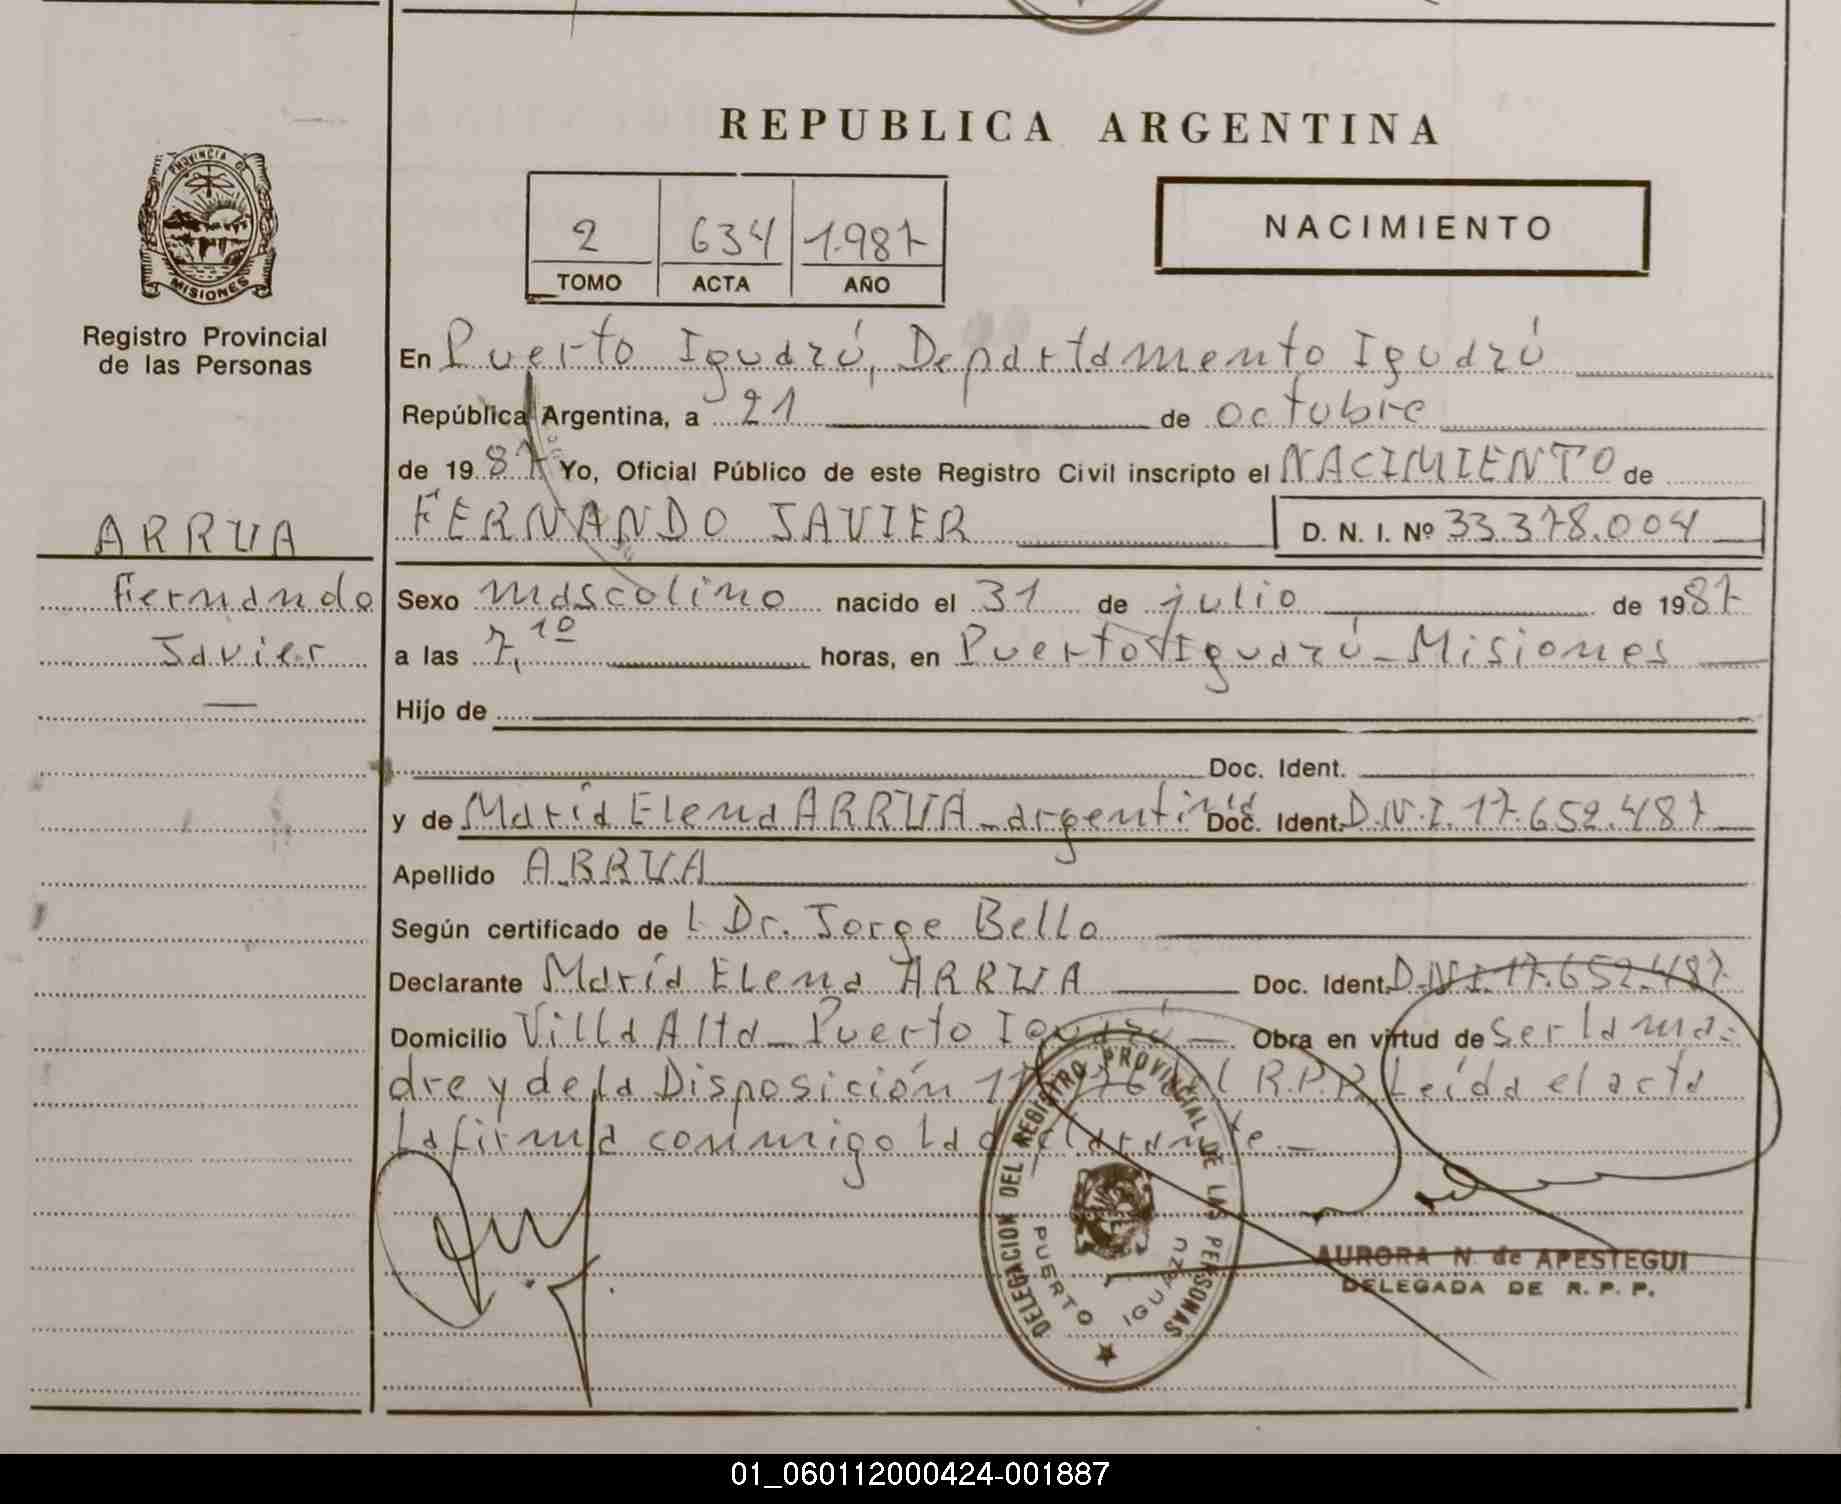 REPUBLICA ARGENTINA
PROVINCIA DE
MISIONES
Registro Provincial
de las Personas
2 634 1.987
TOMO ACTA AÑO
NACIMIENTO
En Puerto Iguazú, Departamento Iguazú
República Argentina, a 21 de octubre
de 1987 Yo, Oficial Público de este Registro Civil inscripto el NACIMIENTO de
FERNANDO JAVIER D. N. I. Nº 33.378.004
ARRUA
Fernando
Javier
Sexo masculino nacido el 31 de julio de 1987
a las 7,10 horas, en Puerto Iguazú - Misiones
Hijo de
Doc. Ident.
y de María Elena ARRUA - argentina Doc. Ident. D.N.I. 17.652.487
Apellido ARRUA
Según certificado de l Dr. Jorge Bello
Declarante María Elena ARRUA Doc. Ident. D.N.I. 17.652.487
Domicilio Villa Alta - Puerto Iguazú - Obra en virtud de ser la ma-
dre y de la Disposición R.P.P. Leída el acta
la firma conmigo la declarante.-
DELEGACION DEL REGISTRO PROVINCIAL DE LAS PERSONAS
PUERTO IGUAZU
AURORA N. de APESTEGUI
DELEGADA DE R. P. P.
01_060112000424-001887